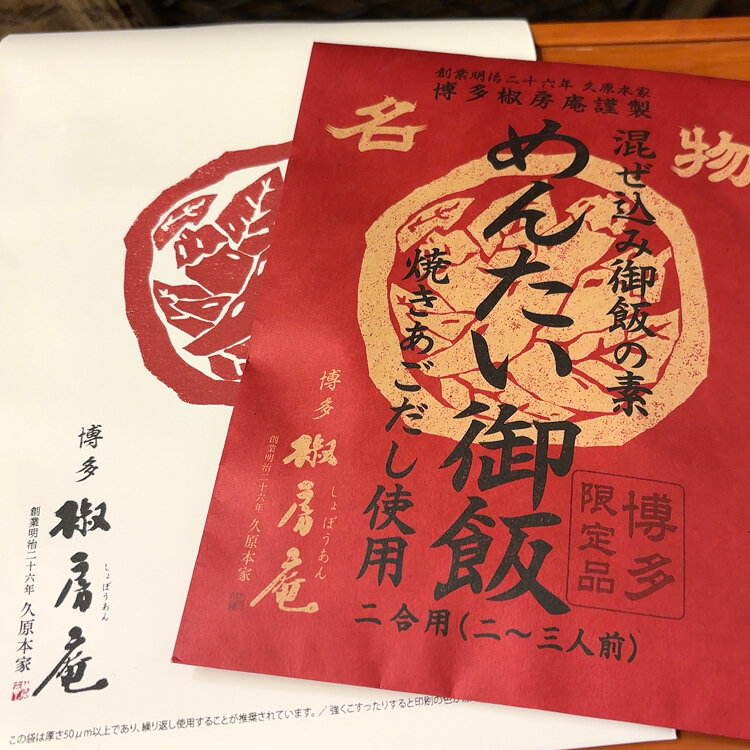 創業明治二十六年 久原本家
博多椒房庵謹製
名物
混ぜ込み御飯の素
めんたい御飯
焼きあごだし使用
二合用(二〜三人前)
博多
限定品
博多
椒房庵
しょぼうあん
創業明治二十六年 久原本家
博多
椒房庵
しょぼうあん
創業明治二十六年 久原本家
この袋は厚さ50μm以上であり、繰り返し使用することが推奨されています。/ 強くこすったりすると印刷の色が